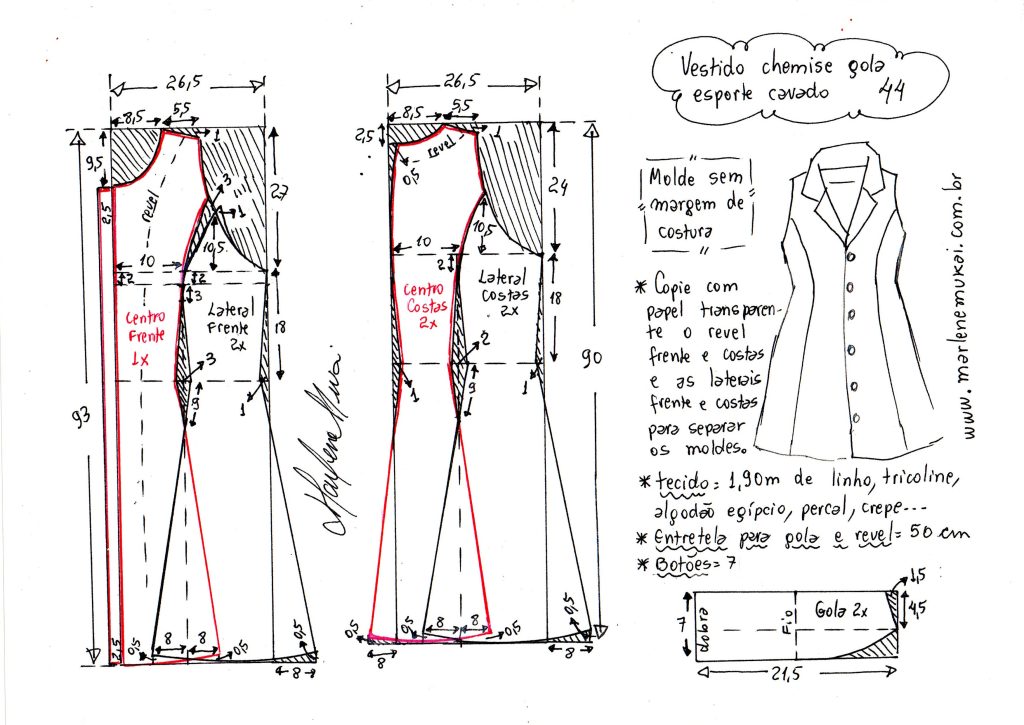 Vestido chemise gola
esporte cavado 44
Molde sem
margem de
costura
* Copie com
papel transparen-
te o revel
frente e costas
e as laterais
frente e costas
para separar
os moldes.
* tecido = 1,90m de linho, tricoline,
algodão egípcio, percal, crepe---
* Entretela para gola e revel = 50 cm
* Botões = 7
www.marlenemukai.com.br
26,5
8,5
5,5
1
9,5
2,5
revel
3
1
23
10,5
10
2
2
3
Centro
Frente
1x
Lateral
Frente
2x
18
3
9
1
93
2,5
0,5
8
8
0,5
0,5
8
26,5
8,5
5,5
1
2,5
0,5
revel
24
10,5
10
2
Centro
Costas
2x
Lateral
Costas
2x
18
2
9
1
1
90
0,5
8
0,5
8
8
0,5
0,5
8
1,5
4,5
7
dobra
Fio
Gola 2x
21,5